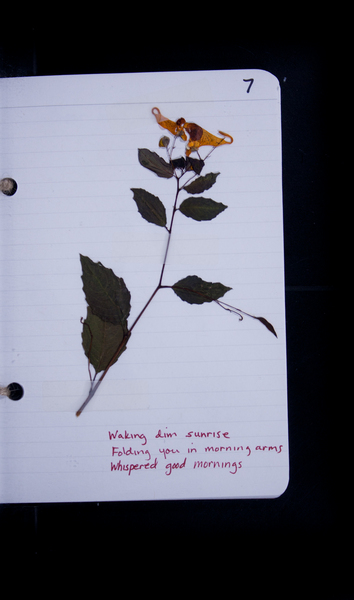 7
Waking dim sunrise
Folding you in morning arms
Whispered good mornings